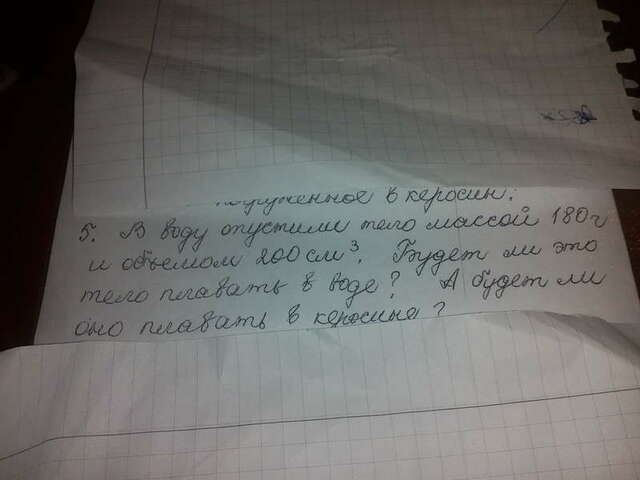 погруженное в керосин.
5. В воду опустили тело массой 180 г
и объемом 200 см³. Будет ли это
тело плавать в воде? А будет ли
оно плавать в керосине?